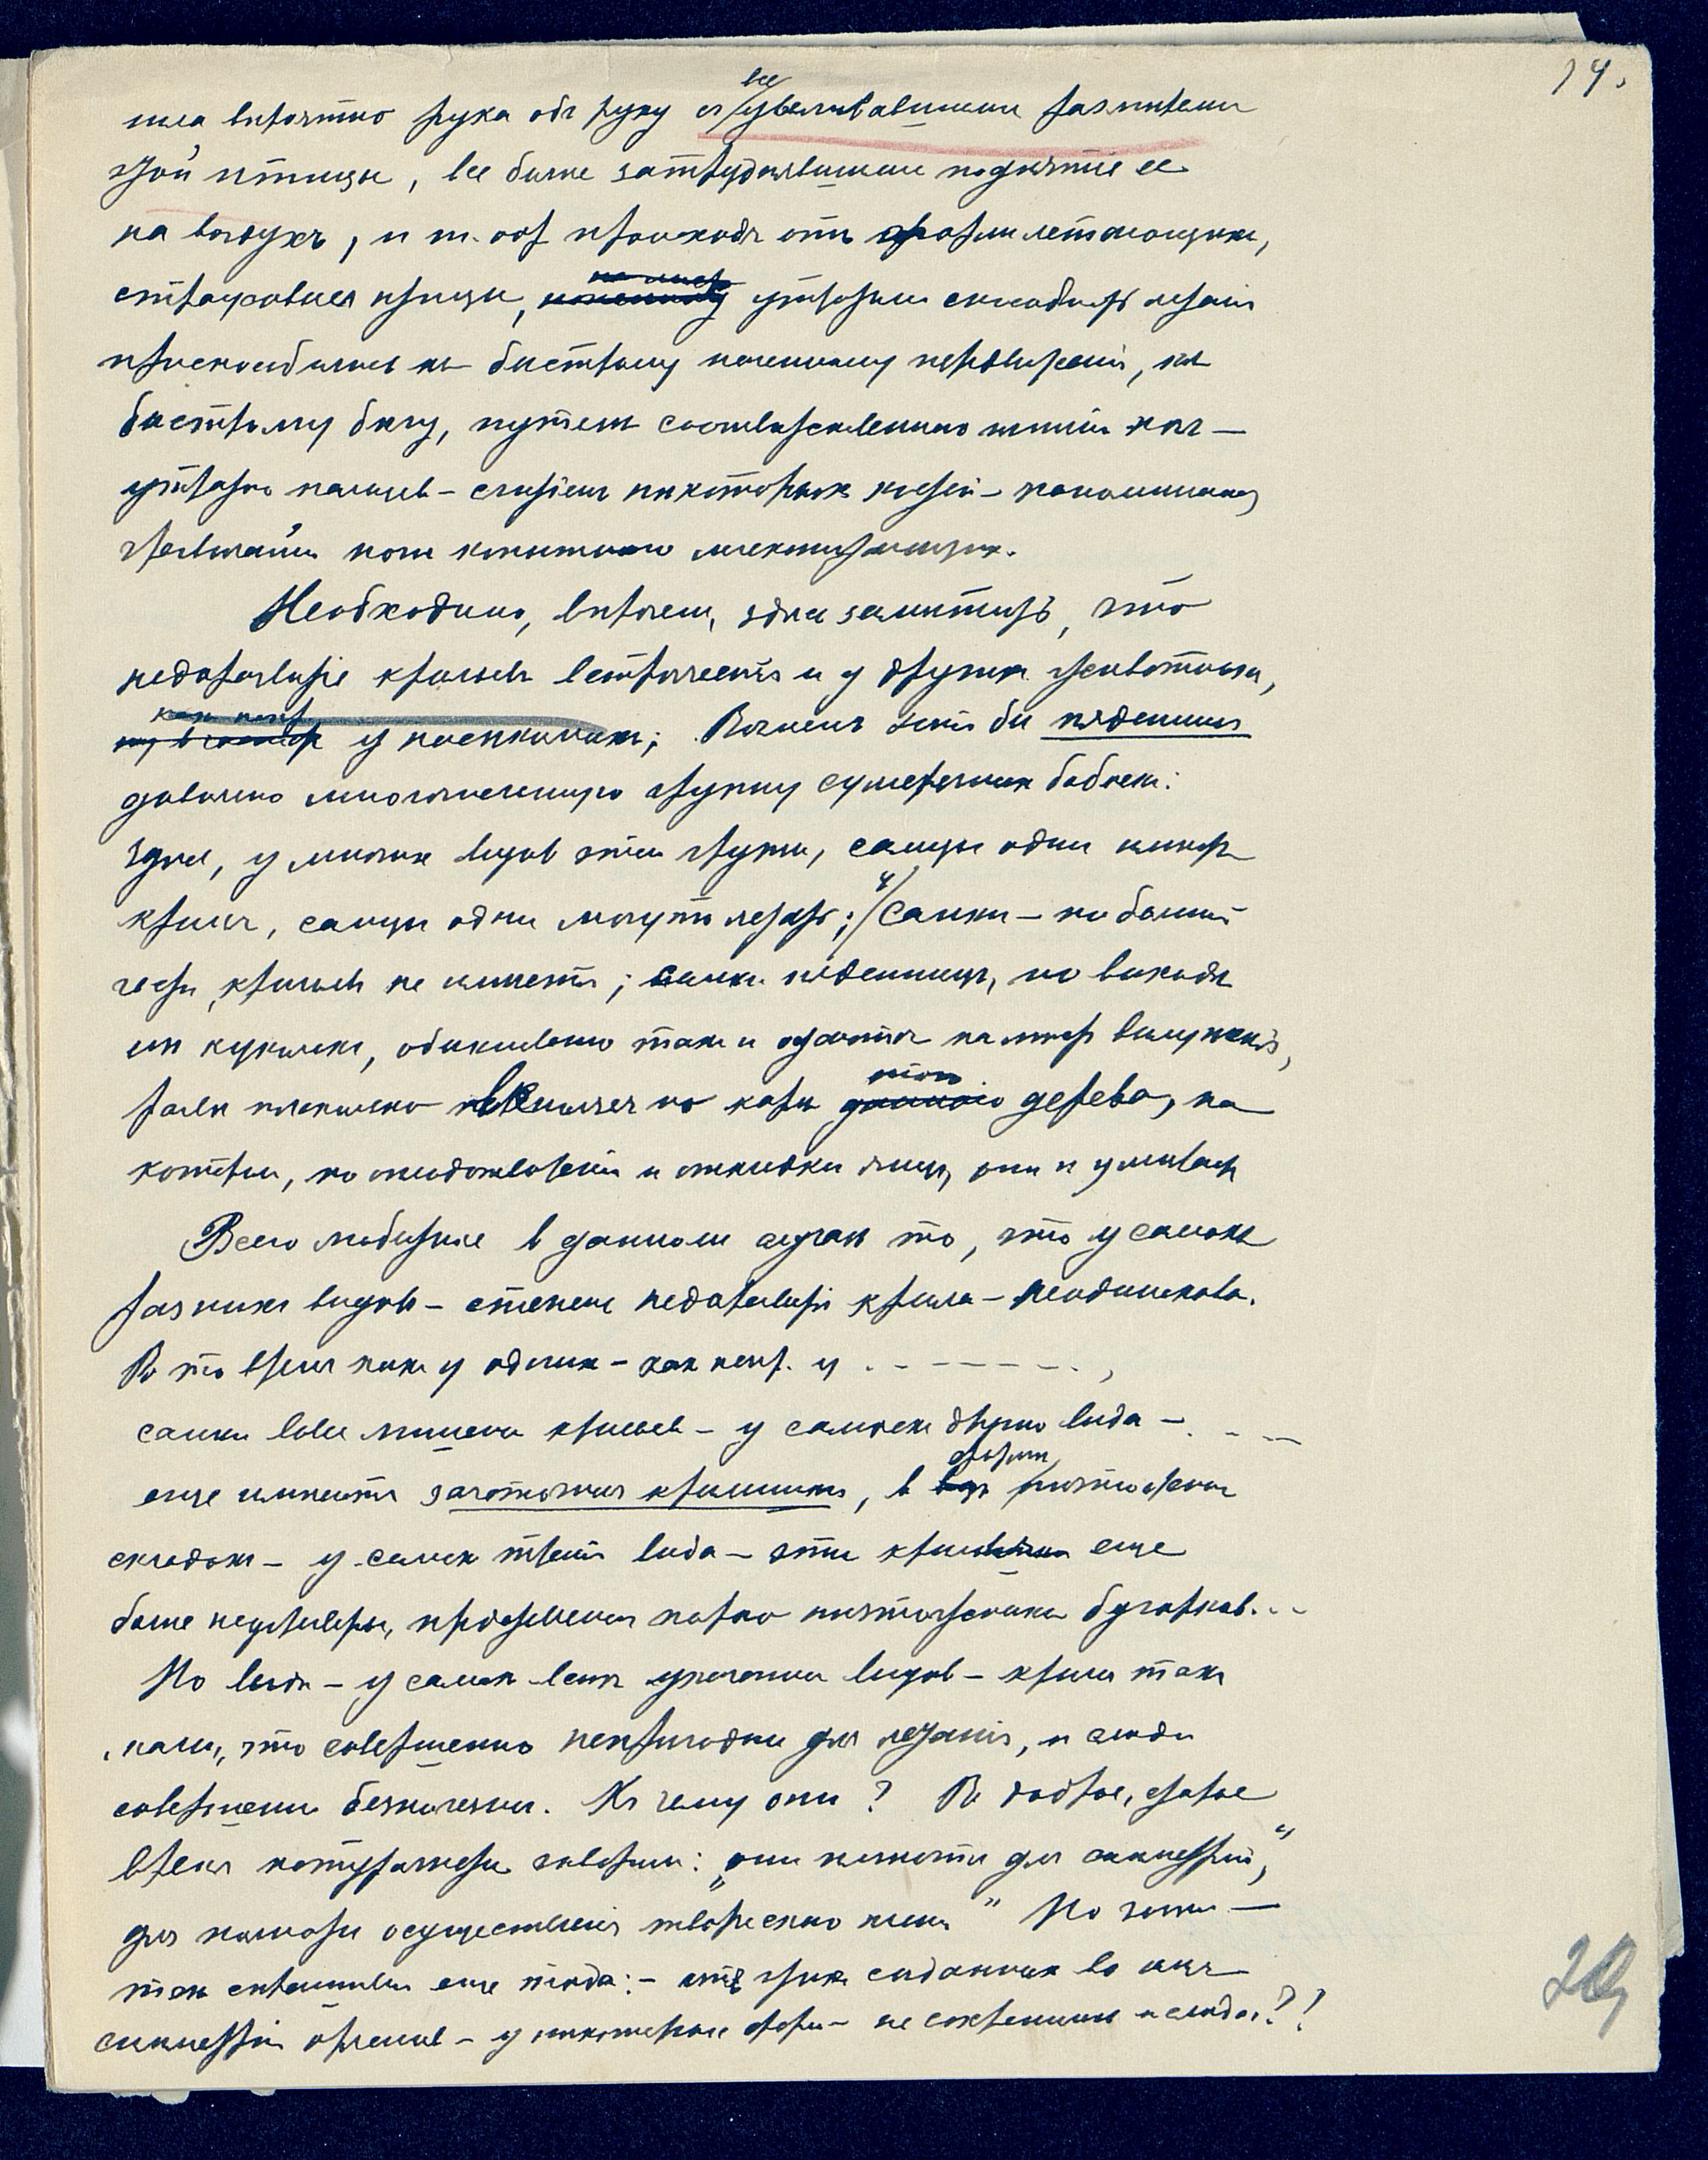 14.
все
шла вероятно рука об руку с увеличившимися размерами
этой птицы, все более затруднявшими поднятие ее
на воздух, и т. обр происходя от форм летающих,
страусовые птицы, утратив способность летания
приспособились к быстрому наземному передвижению, к
быстрому бегу, путем
утраты пальцев – слияния некоторых костей – напоминая
чрезвычайно ноги копытного млекопитающих.
Необходимо, впрочем, здесь заметить, что
недоразвитие крыльев встречается и у других животных,
как напр.
у насекомых; Возьмем хотя бы пядениц
довольно многочисленную группу сумеречных бабочек:
здесь, у многих видов этой группы, самцы одни имеют
крылья, самцы одни могут летать; самки – по большей
части крыльев не имеют; самки пядениц, по выходе
из куколки, обыкновенно так и остаются на месте вылупления,
того
по коре дерева, на
котором, по оплодотворении и откладки яиц, они и умирают
Всего любопытнее в данном случае то, что у самок
разных видов – степень недоразвития крыла – неодинакова.
В то время как у одних – как напр. у . – – – – – . ,
самки вовсе лишены крыльев – у самок другого вида – . – –
форме
еще имеются зачаточные крылышки, в ничтожных
складок – у самок третьего вида – эти крылышки еще
более недоразвиты, представлены парою ничтожных бугорков...
Но ведь – у самок всех указанных видов – крылья так
малы, что совершенно непригодны для летания, и следов
совершенно бесполезны. К чему они? В доброе, старое
время натуралисты говорили: „они имеются для симметрии,“
для полноты осуществления творческого плана“ Но почему –
так спрашивали еще тогда: –
симметрии – у некоторых форм – не сохранились и следа?!
20